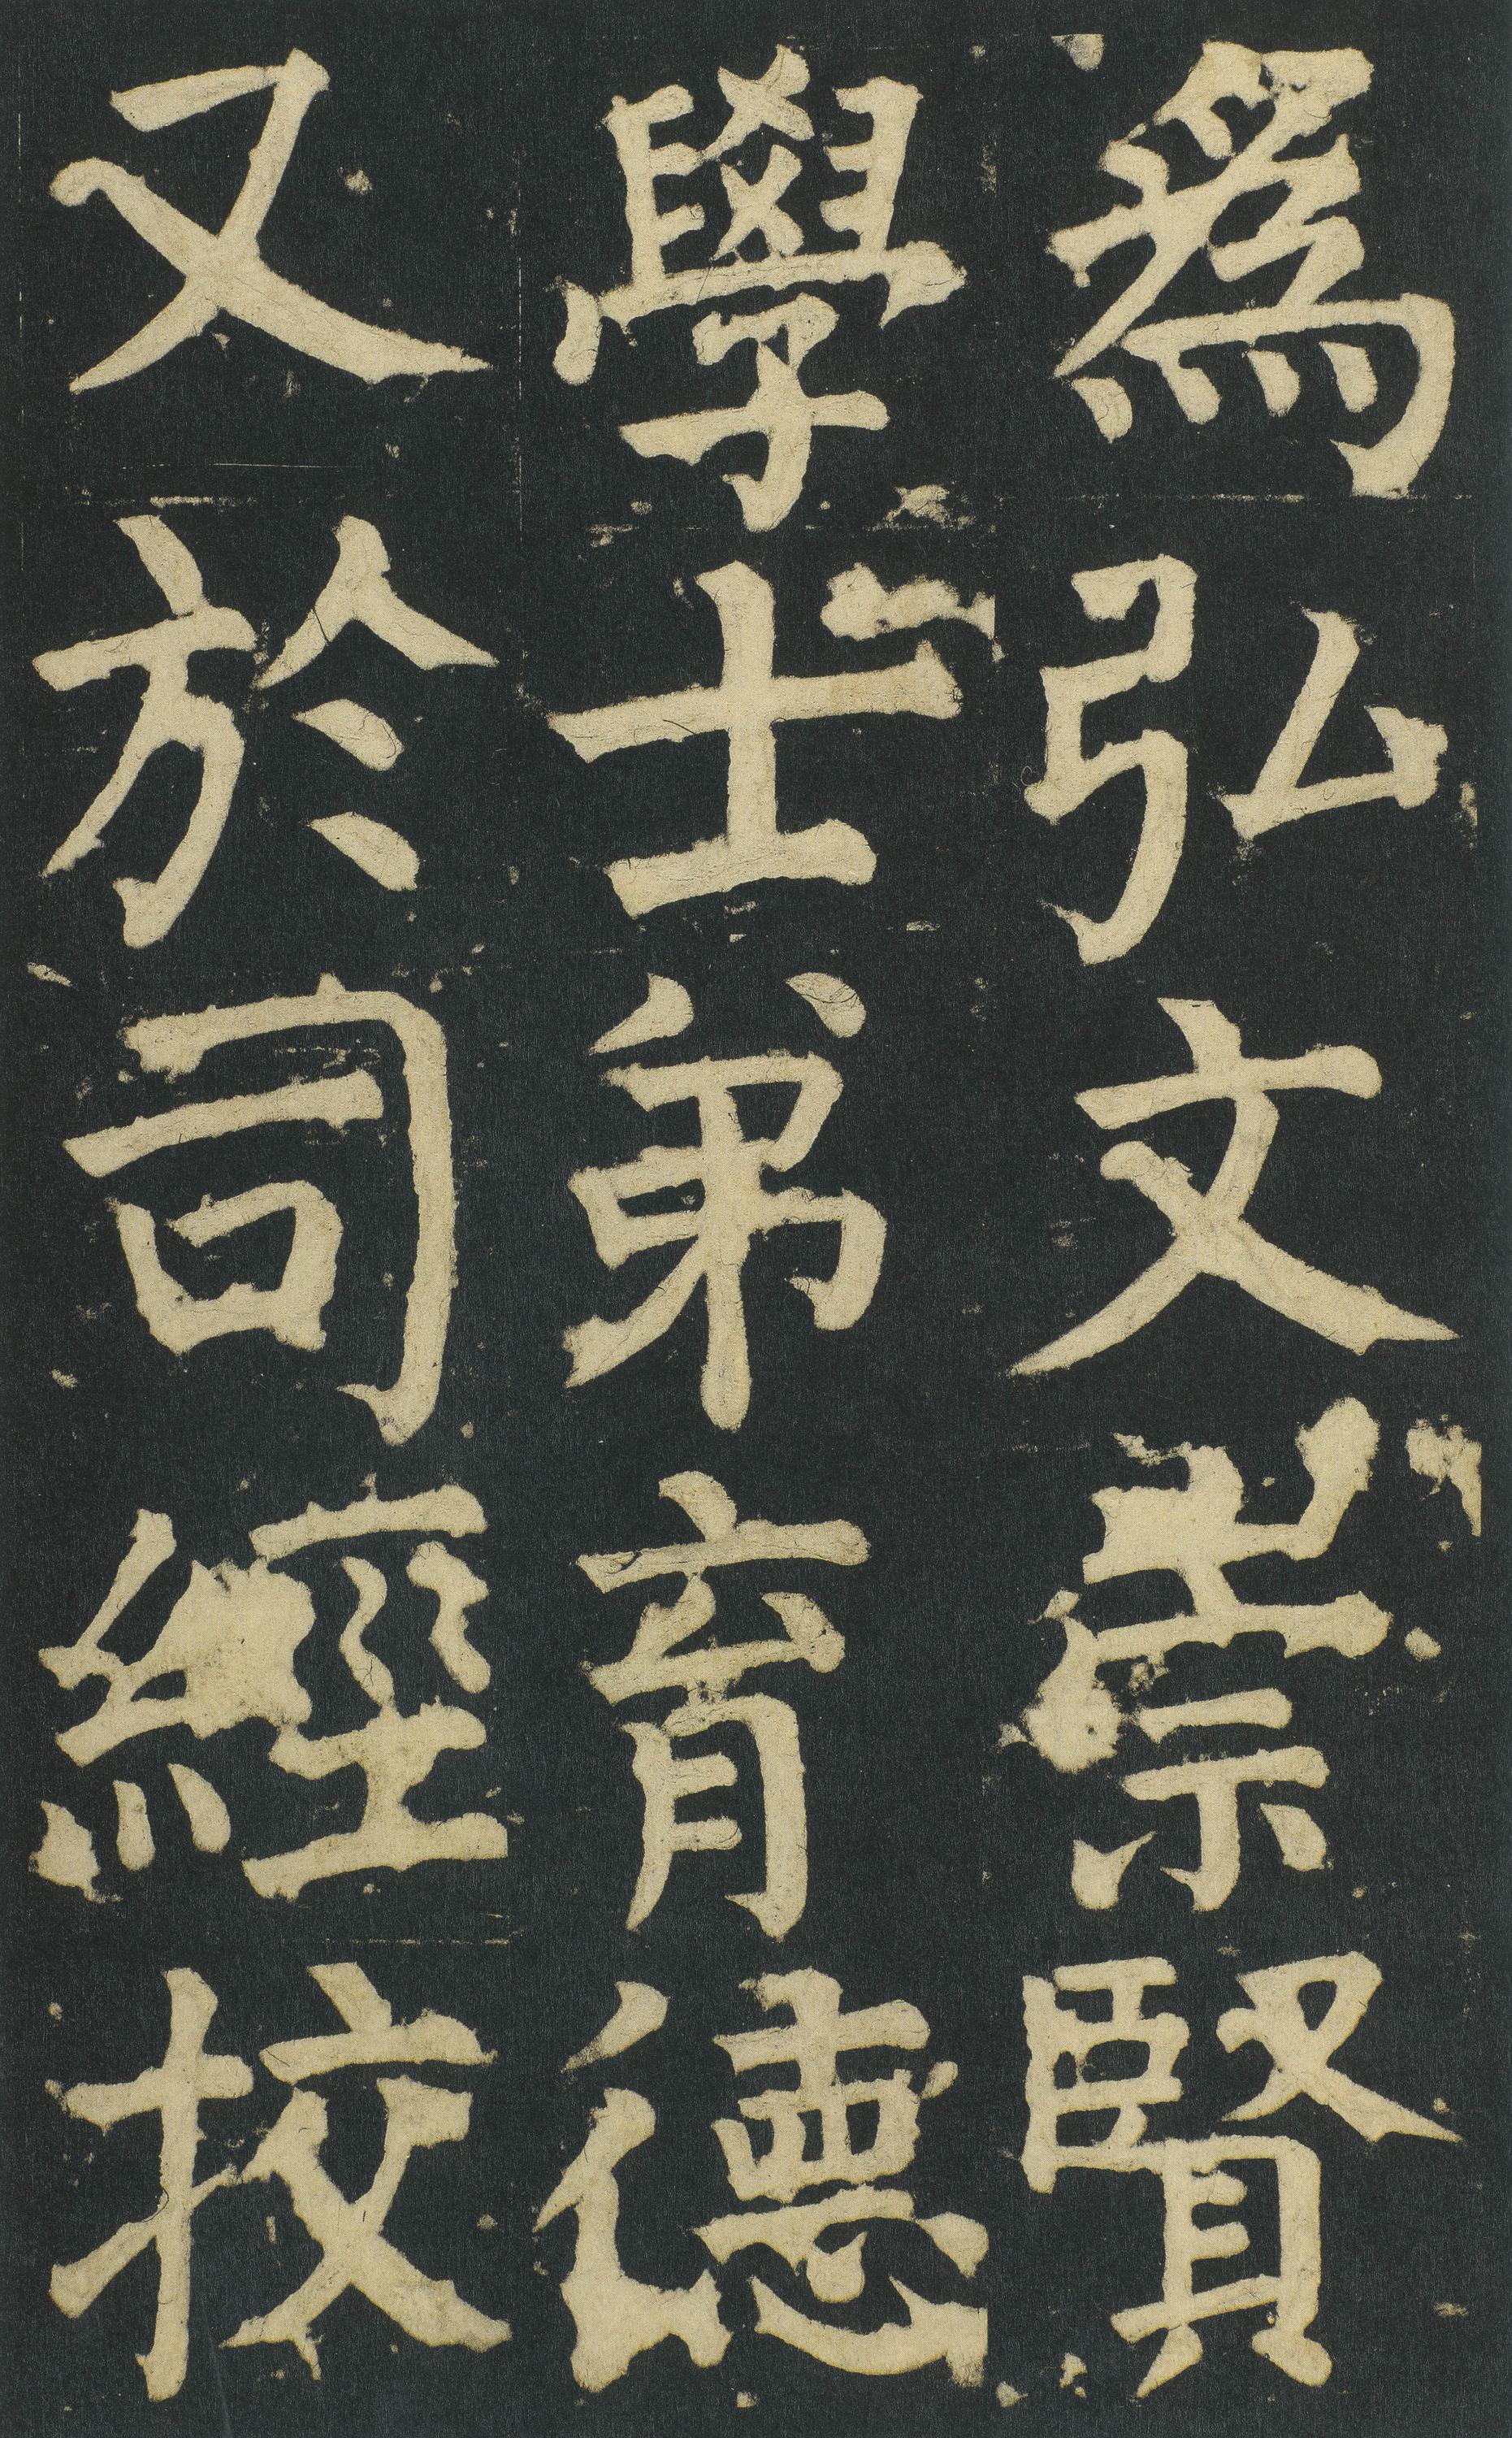 爲弘文崇賢
學士弟育德
又於司經校